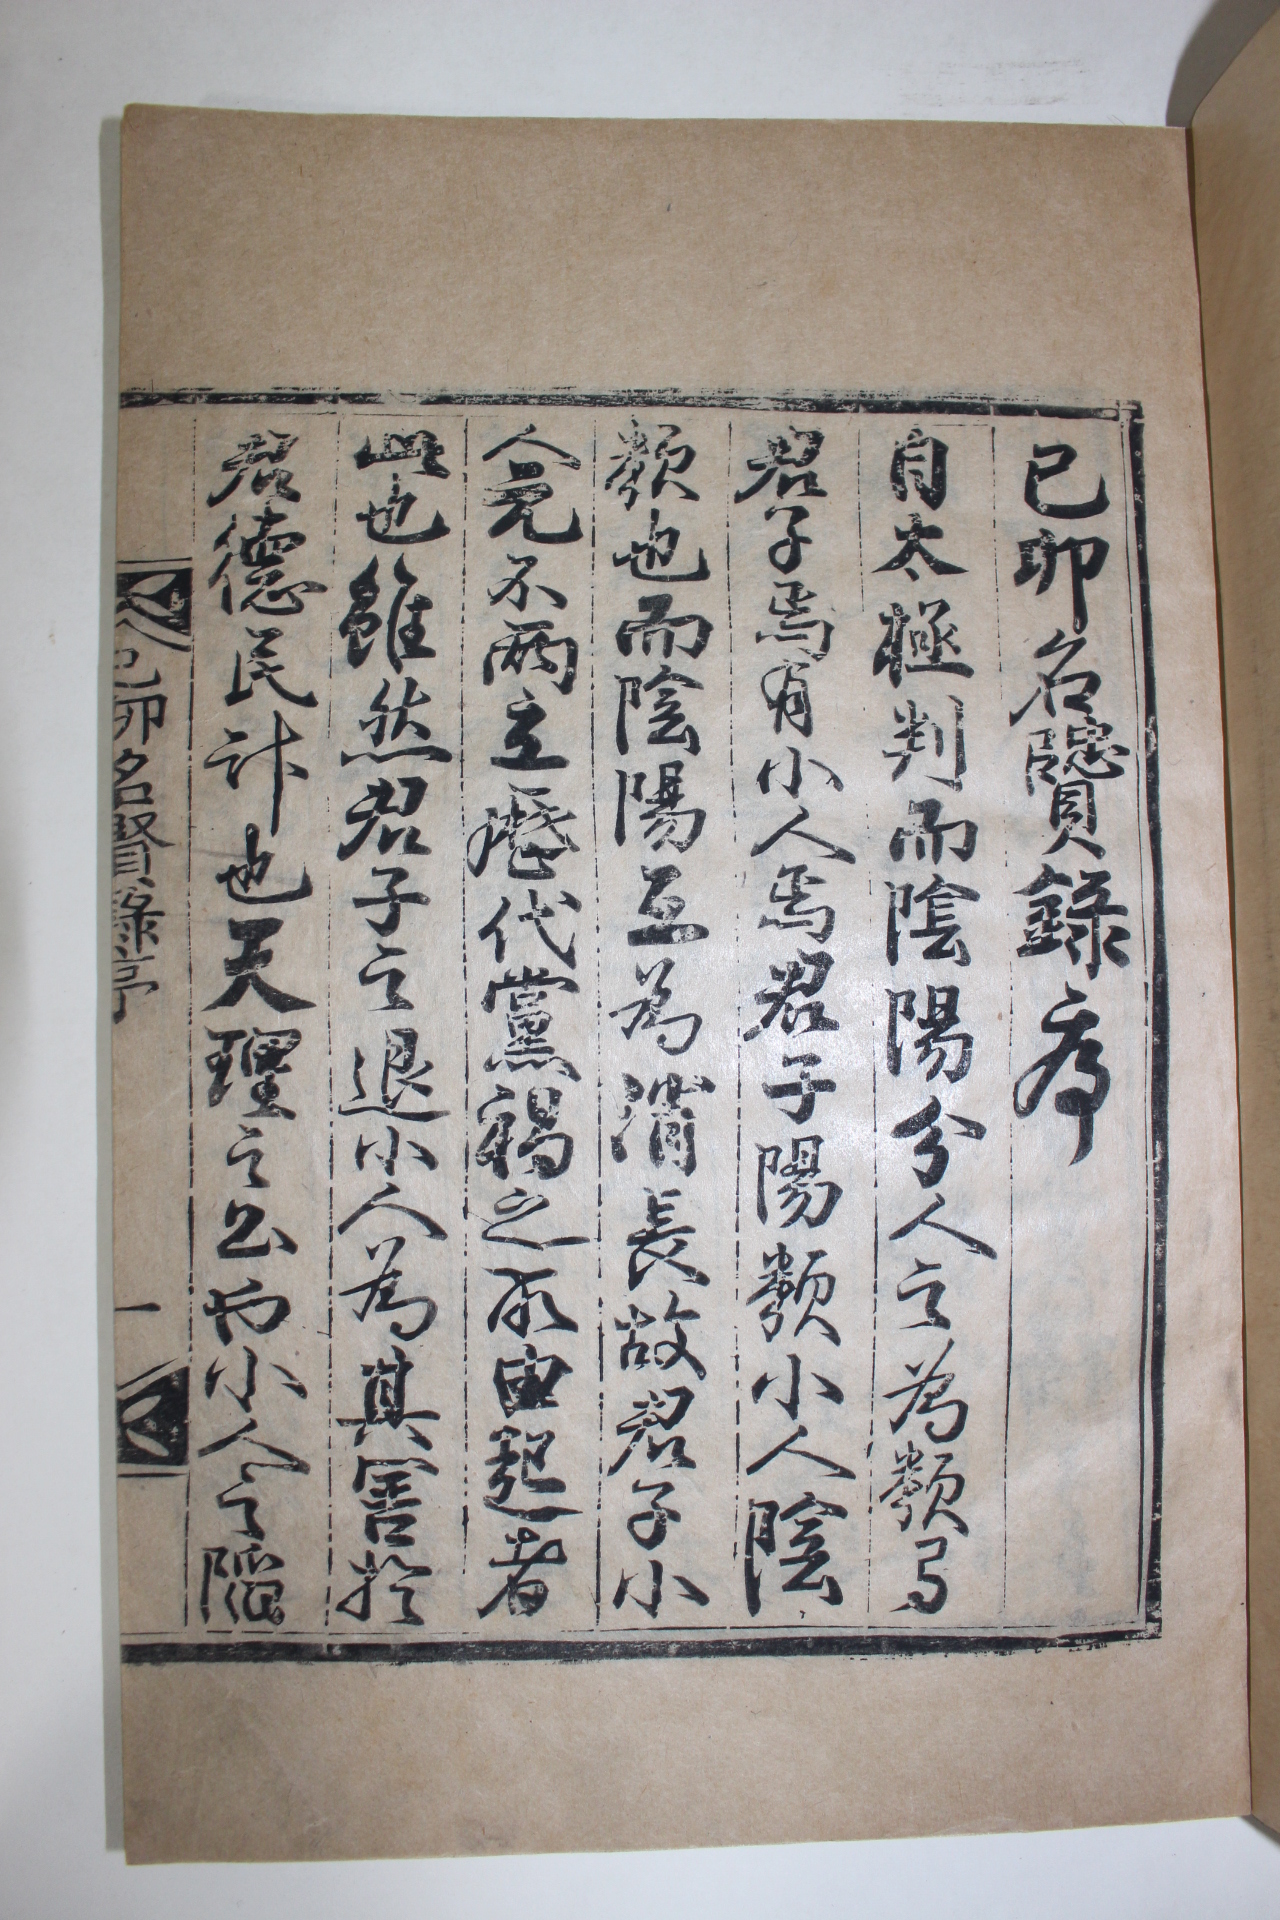 己卯名賢錄序
自太極判而陰陽分人之爲類焉
君子焉有小人焉君子陽類小人陰
類也而陰陽互爲消長故君子小
人元不兩立歷代黨禍之所由起者
此也雖然君子之退小人爲其害於
君德民 也天理之公而小人之
己卯名賢錄序
一